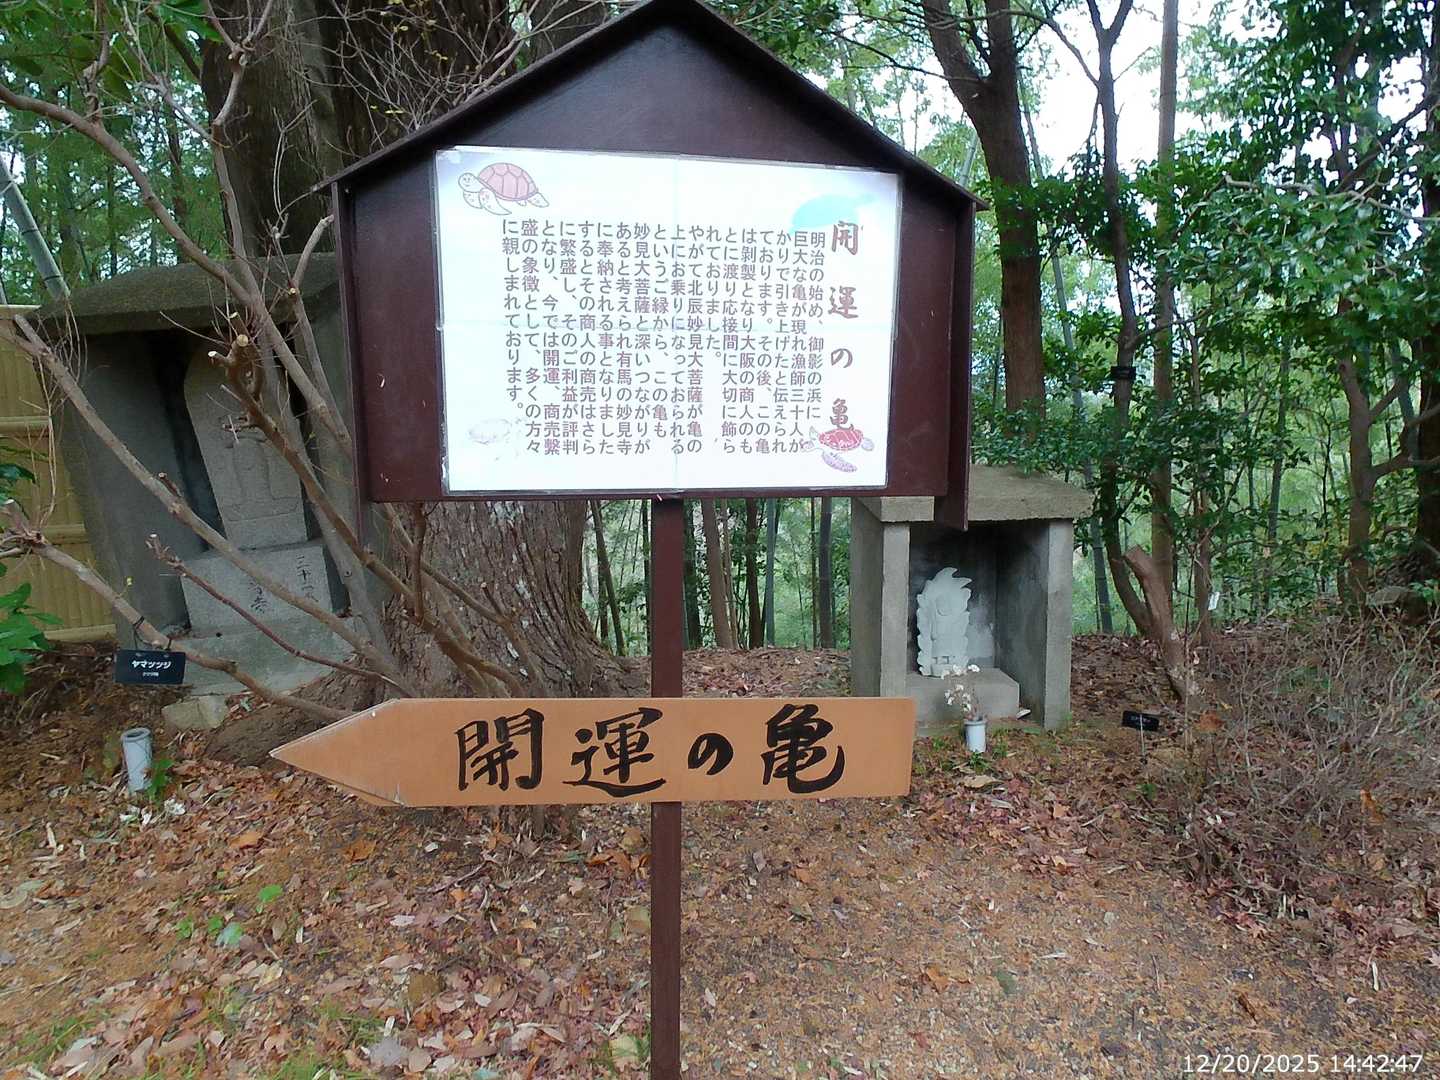 開運の亀
明治の始め、御影の浜に
巨大な亀が現れ漁師三十人が
かりで引き上げたと伝えられ
ております。その後、この亀
は剝製となり大阪の商人のも
とに渡り応接間に大切に飾ら
れておりました。
やがて北辰妙見大菩薩が亀の
上にお乗りになっておられる
というご縁から、この亀も
妙見大菩薩と深いつながりが
あると考えられ有馬の妙見寺
に奉納される事となりました
するとその商人の商売はさら
に繁盛し、そのご利益が評判
となり、今では開運、商売繫
盛の象徴として、多くの方々
に親しまれております。
開運の亀
ヤマツツジ
12/20/2025 14:42:47